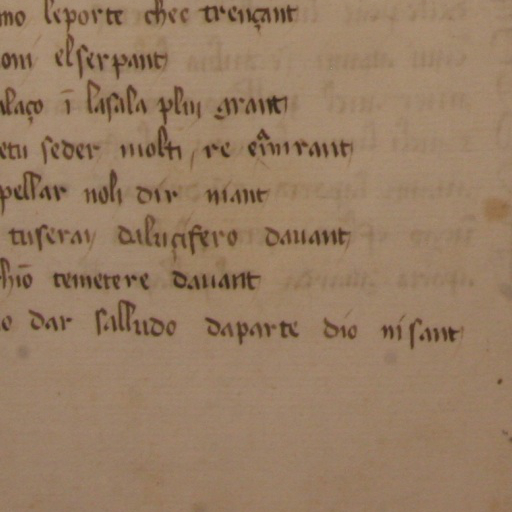 mo leporte chee trençant
oni elserpant
alaço ī lasala plu grant
etu seder molti re emirant
pellar noli dir niant
tuserai daluçifero dauant
hiō temetere dauant
o dar salludo daparte dio ni sant